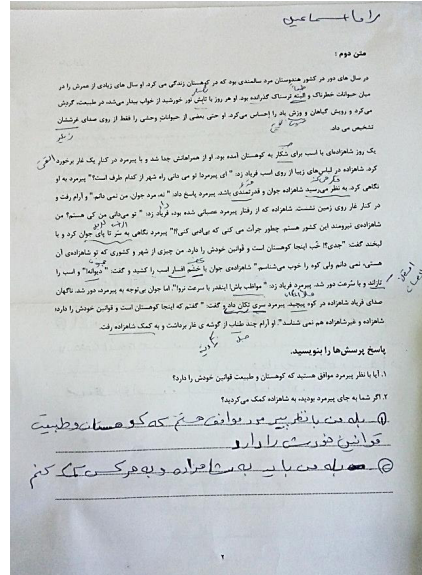 راما اسماعيل
متن دوم :
در سال های دور در کشور هندوستان مرد سالمندی بود که در کوهستان زندگی می کرد. او سال های زیادی از عمرش را در
میان حیوانات خطرناک و البته ترسناک گذرانده بود. او هر روز با تابش نور خورشید از خواب بیدار می‌شد، در طبیعت، گردش
می‌کرد و رویش گیاهان و وزش باد را إحساس می‌کرد. او حتی بعضی از حیوانات وحشی را فقط از روی صدای غرششان
تشخیص می داد.
یک روز شاهزاده‌ای با اسب برای شکار به کوهستان آمده بود. او از همراهانش جدا شد و با پیرمرد در کنار یک غار برخورد
کرد. شاهزاده در لباس‌های زیبا از روی اسب فریاد زد: " ای پیرمرد! تو می دانی راه شهر از کدام طرف است؟" پیرمرد به او
نگاهی کرد. به نظر می‌رسید شاهزاده جوان و قدرتمندی باشد. پیرمرد پاسخ داد: " نه، مرد جوان، من نمی دانم." و آرام رفت و
در کنار غار روی زمین نشست. شاهزاده که از رفتار پیرمرد عصبانی شده بود، فریاد زد: " تو می‌دانی من کی هستم؟ من
شاهزاده‌ی نیرومند این کشور هستم. چطور جرأت می کنی که بی‌ادبی کنی؟!" پیرمرد نگاهی به سَر تا پای جوان کرد و با
لبخند گفت: "جدی؟! خُب اینجا کوهستان است و قوانین خودش را دارد. من چیزی از شهر و کشوری که تو شاهزاده‌ی آن
هستی، نمی دانم ولی کوه را خوب می‌شناسم." شاهزاده‌ی جوان با خشم افسار اسب را کشید و گفت: " دیوانه!" و اسب را
تازاند و با سرعت دور شد. پیرمرد فریاد زد: " مواظب باش! اینقدر با سرعت نرو!". اما جوان بی‌توجه به پیرمرد، دور شد. ناگهان
صدای فریاد شاهزاده در کوه پیچید. پیرمرد سری تکان داد و گفت: " گفتم که اینجا کوهستان است و قوانین خودش را دارد؛
شاهزاده و غیرشاهزاده هم نمی شناسد". او آرام چند طناب از گوشه ی غار برداشت و به کمک شاهزاده رفت.
پاسخ پرسش‌ها را بنویسید.
۱. آیا با نظر پیرمرد موافق هستید که کوهستان و طبیعت قوانین خودش را دارد؟
۲. اگر شما به جای پیرمرد بودید، به شاهزاده کمک می‌کردید؟
① بله من با نظر پیر مرد موافق هستم که کوهستان و طبیعت
قوانین خودش را دارد
② بله من باید به شاهزاده و به هر کس کمک کنم
۲